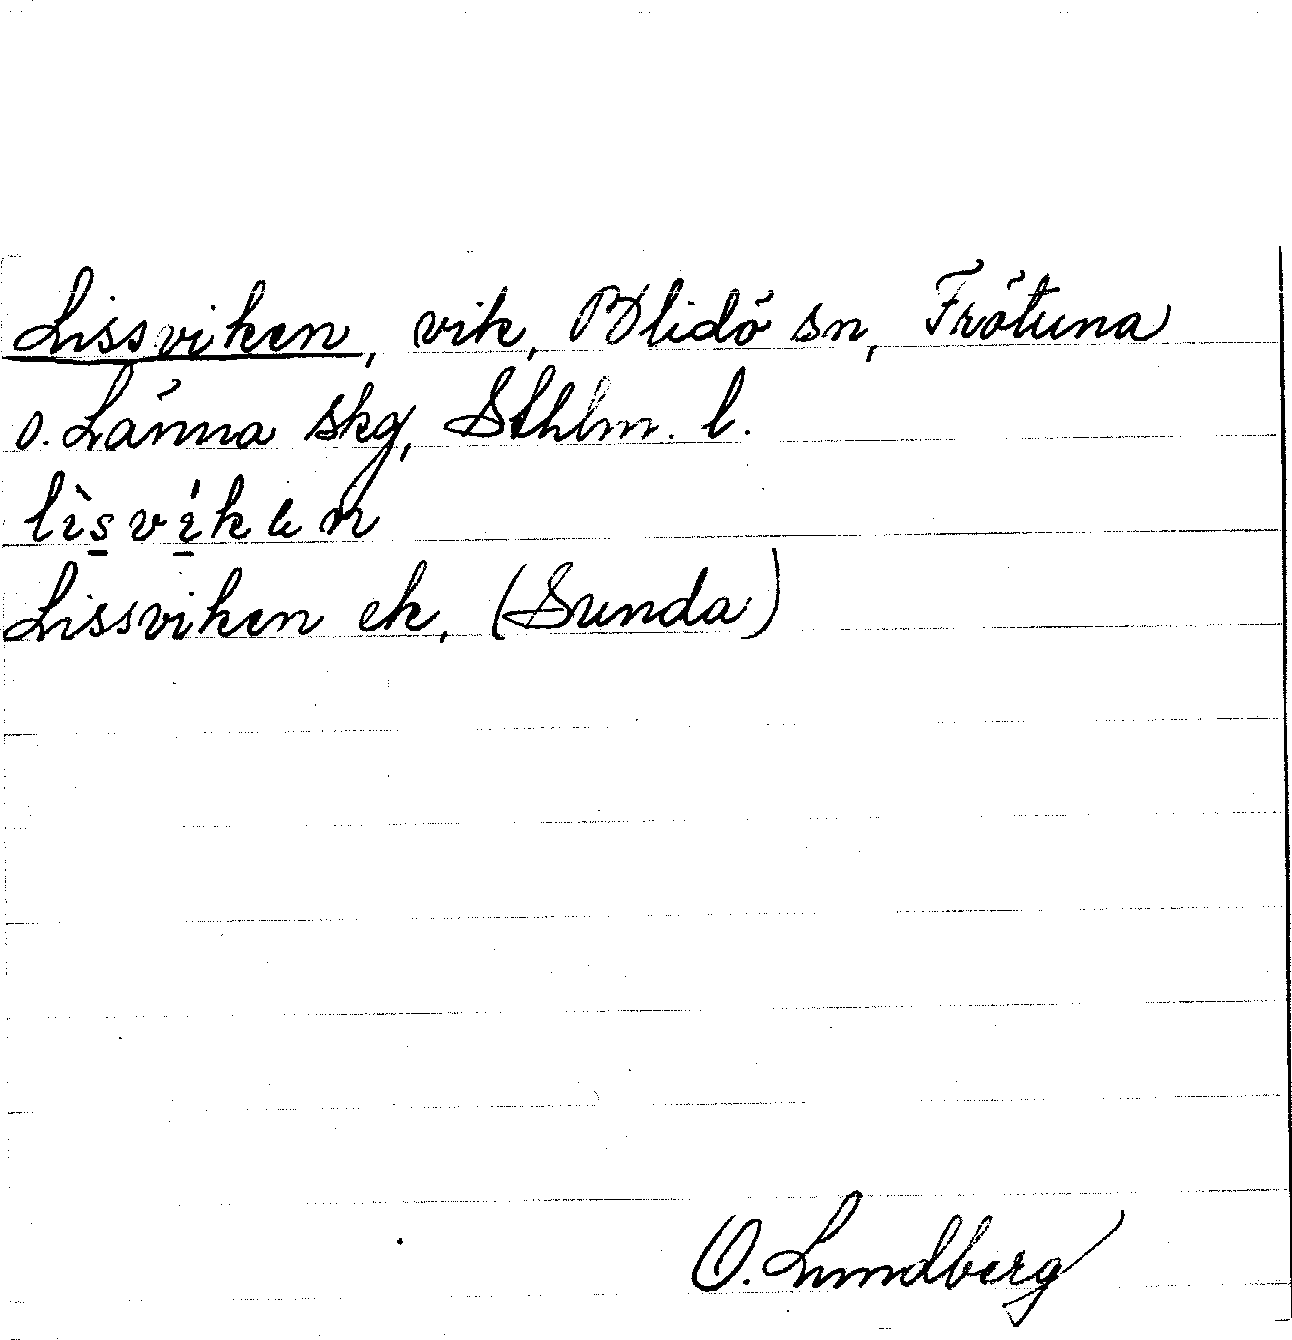 Lissviken, vik, Blidö sn, Frötuna
o. Länna skg, Sthlm. l.
lìs̲ví̲ken
Lissviken ek. (Sunda)
O. Lundberg